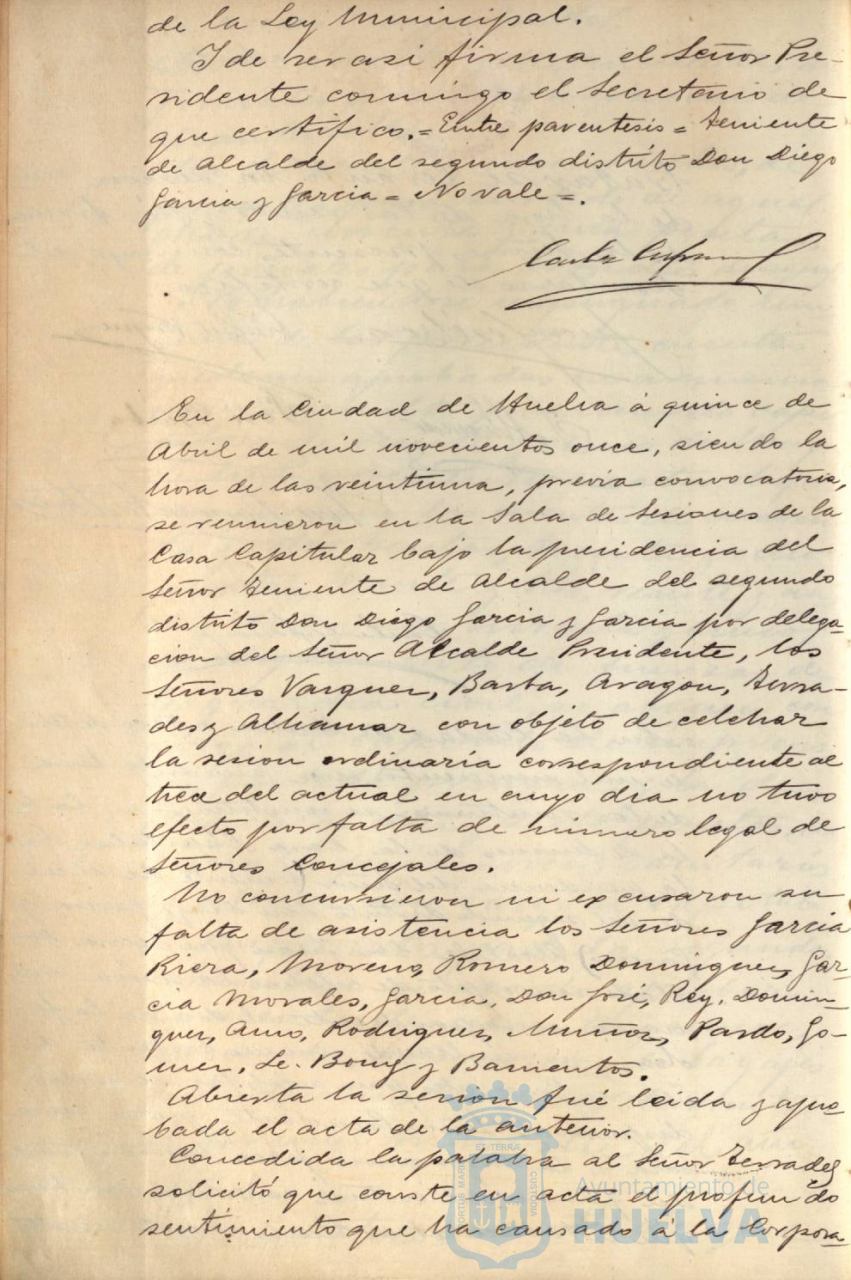 de la Ley Municipal.
Y de ser asi firma el Señor Pre-
sidente conmigo el Secretario de
que certifico.=Entre parentesis=Teniente
de Alcalde del segundo distrito Don Diego
Garcia y Garcia=No vale=.
En la Ciudad de Huelva á quince de
Abril de mil novecientos once, siendo la
hora de las veintiuna, previa convocatoria,
se reunieron en la Sala de Sesiones de la
Casa Capitular bajo la presidencia del
Señor Teniente de Alcalde del segundo
distrito Don Diego Garcia y Garcia por delega-
cion del Señor Alcalde Presidente, los
Señores Vazquez, Barba, Aragon, Terra-
des y Alhamar con objeto de celebrar
la sesion ordinaria correspondiente al
trece del actual en cuyo dia no tuvo
efecto por falta de número legal de
Señores Concejales.
No concurrieron ni excusaron su
falta de asistencia los Señores Garcia
Riera, Moreno, Romero Dominguez, Gar-
cia Morales, Garcia, Don José, Rey, Domin-
guez, Rodriguez, Muñoz, Pardo, Go-
mez, Le-Bourg y Barrientos.
Abierta la sesion fué leida y apro-
bada el acta de la anterior.
Concedida la palabra al Señor Terrades
solicitó que conste en acta el profundo
sentimiento que ha causado á la Corpora-
Ayuntamiento de
HUELVA